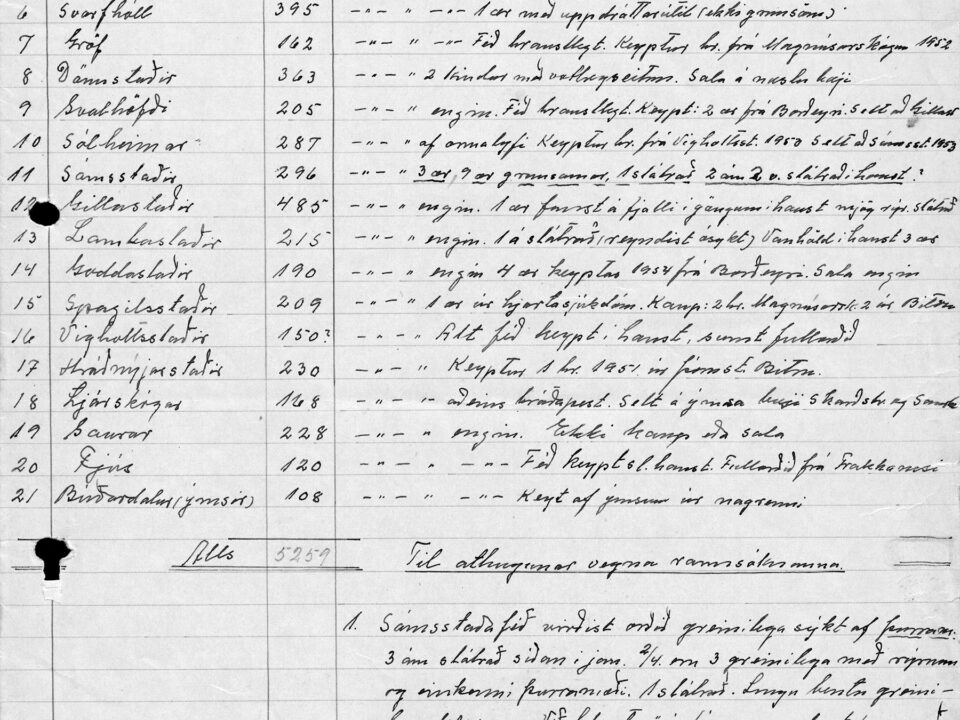 6 Svarfhóll 395 -"- " -"- 1 ær með uppdráttarsýki (ekki grunsöm)
7 Gröf 162 -"- " -"- Féð hraustlegt. Keyptur hr. frá Magnússkógum 1952
8 Dönustaðir 363 -"- " 2 kindur með votheyseitrun. Sala á næstu bæji
9 Svalhöfði 205 -"- " engin. Féð hraustlegt. Keypt: 2 ær frá Borðeyri. Selt að Gillast
10 Sólheimar 287 -"- " af ormalyfi Keyptur hr. frá Vígholtsst. 1950 Selt að Sámsst. 1953
11 Sámsstaðir 296 -"- " 3 ær, 9 ær grunsamar, 1 slátrað 2 ám 2 v. slátrað í haust?
12 Gillastaðir 485 -"- " engin. 1 ær fanst á fjalli í göngum í haust mjög rýr. slátrað
13 Lambastaðir 215 -"- " engin. 1 á slátrað (reyndist ósýkt) Vanhöld í haust 3 ær
14 Goddastaðir 190 -"- " engin 4 ær keyptar 1954 frá Borðeyri. Sala engin
15 Spágilsstaðir 209 -"- " 1 ær úr hjartasjúkdóm. Kaup: 2 hr. 2 úr Bitru
16 Vígholtsstaðir 150? -"- " Alt féð keypt í haust, sumt fullorðið
17 Hrútsstaðir 230 -"- " Keyptur 1 hr. 1951 úr Bitru.
18 Ljárskógar 168 -"- " aðeins bráðapest. Selt á ýmsa bæji Skarðstr og Saurb
19 Saurar 228 -"- " engin. Ekki kaup eða sala
20 Fjós 120 -"- " -"- Féð keypt sl. haust. Fullorðið frá
21 Búðardalur (ýmsir) 108 -"- " -"- Keyt af ýmsum úr nagrenni
Alls 5259 Til athugunar vegna rannsóknanna.
1. Sámsstaða féð virðist orðið greinilega sýkt af þurram.
3 ám slátrað síðan í jan. 2/4. eru 3 greinilega með rýrnun
og einkenni þurramæði. 1 slátrað. Lungu bentu greini-